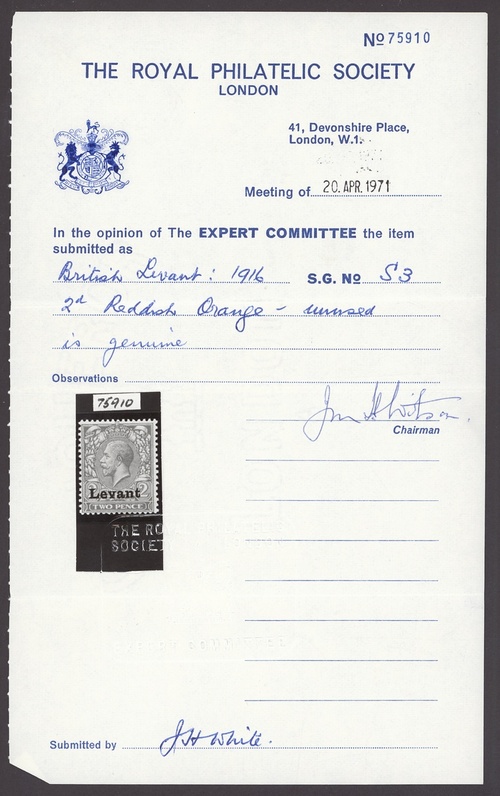 No 75910
THE ROYAL PHILATELIC SOCIETY
LONDON
41, Devonshire Place,
London, W.1.
Meeting of 20. APR. 1971
In the opinion of The EXPERT COMMITTEE the item
submitted as
British Levant: 1916 S.G. No S3
2d Reddish Orange - unused
is genuine
Observations
75910
Levant
2
TWO PENCE
THE RO
SOCIET
Chairman
Submitted by J H White.